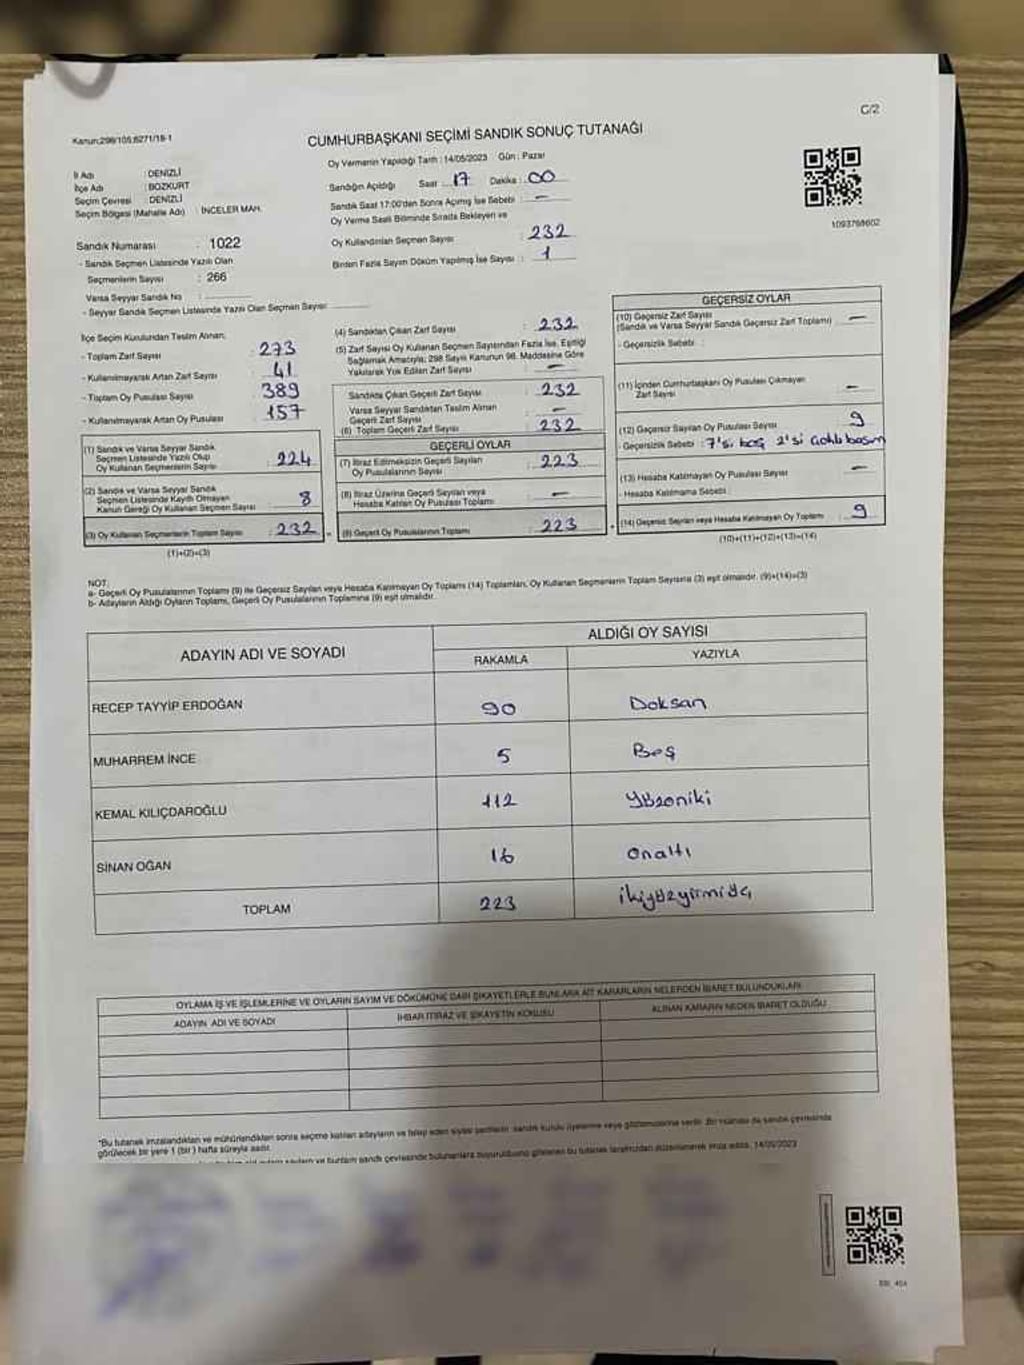 C/2
Kanun:298/105,6271/19-1
CUMHURBAŞKANI SEÇİMİ SANDIK SONUÇ TUTANAĞI
Oy Vermenin Yapıldığı Tarih : 14/05/2023 Gün : Pazar
İl Adı : DENİZLİ
İlçe Adı : BOZKURT
Seçim Çevresi : DENİZLİ
Seçim Bölgesi (Mahalle Adı) : İNCELER MAH.
Sandığın Açıldığı Saat : 17 Dakika : 00
Sandık Saat 17:00'den Sonra Açılmış İse Sebebi : —
Oy Verme Saati Bitiminde Sırada Bekleyen ve
Oy Kullandırılan Seçmen Sayısı : 232
Birden Fazla Sayım Döküm Yapılmış İse Sayısı : 1
1093768602
Sandık Numarası : 1022
- Sandık Seçmen Listesinde Yazılı Olan
Seçmenlerin Sayısı : 266
Varsa Seyyar Sandık No :
- Seyyar Sandık Seçmen Listesinde Yazılı Olan Seçmen Sayısı :
İlçe Seçim Kurulundan Teslim Alınan;
- Toplam Zarf Sayısı : 273
- Kullanılmayarak Artan Zarf Sayısı : 41
- Toplam Oy Pusulası Sayısı : 389
- Kullanılmayarak Artan Oy Pusulası : 157
(1) Sandık ve Varsa Seyyar Sandık
Seçmen Listesinde Yazılı Olup
Oy Kullanan Seçmenlerin Sayısı : 224
(2) Sandık ve Varsa Seyyar Sandık
Seçmen Listesinde Kayıtlı Olmayan
Kanun Gereği Oy Kullanan Seçmen Sayısı : 8
(3) Oy Kullanan Seçmenlerin Toplam Sayısı : 232
(1)+(2)=(3)
(4) Sandıktan Çıkan Zarf Sayısı : 232
(5) Zarf Sayısı Oy Kullanan Seçmen Sayısından Fazla İse, Eşitliği
Sağlamak Amacıyla; 298 Sayılı Kanunun 98. Maddesine Göre
Yakılarak Yok Edilen Zarf Sayısı : —
Sandıkta Çıkan Geçerli Zarf Sayısı : 232
Varsa Seyyar Sandıktan Teslim Alınan
Geçerli Zarf Sayısı : —
(6) Toplam Geçerli Zarf Sayısı : 232
GEÇERLİ OYLAR
(7) İtiraz Edilmeksizin Geçerli Sayılan
Oy Pusulalarının Sayısı : 223
(8) İtiraz Üzerine Geçerli Sayılan veya
Hesaba Katılan Oy Pusulası Toplamı : —
(9) Geçerli Oy Pusulalarının Toplamı : 223
GEÇERSİZ OYLAR
(10) Geçersiz Zarf Sayısı
(Sandık ve Varsa Seyyar Sandık Geçersiz Zarf Toplamı) : —
- Geçersizlik Sebebi :
(11) İçinden Cumhurbaşkanı Oy Pusulası Çıkmayan
Zarf Sayısı : —
(12) Geçersiz Sayılan Oy Pusulası Sayısı : 9
- Geçersizlik Sebebi : 7'si boş 2'si
(13) Hesaba Katılmayan Oy Pusulası Sayısı : —
- Hesaba Katılmama Sebebi :
(14) Geçersiz Sayılan veya Hesaba Katılmayan Oy Toplamı : 9
(10)+(11)+(12)+(13)=(14)
NOT:
a- Geçerli Oy Pusulalarının Toplamı (9) ile Geçersiz Sayılan veya Hesaba Katılmayan Oy Toplamı (14) Toplamları, Oy Kullanan Seçmenlerin Toplam Sayısına (3) eşit olmalıdır. (9)+(14)=(3)
b- Adayların Aldığı Oyların Toplamı, Geçerli Oy Pusulalarının Toplamına (9) eşit olmalıdır.
ADAYIN ADI VE SOYADI
ALDIĞI OY SAYISI
RAKAMLA YAZIYLA
RECEP TAYYİP ERDOĞAN 90 Doksan
MUHARREM İNCE 5 Beş
KEMAL KILIÇDAROĞLU 112 Yüzoniki
SİNAN OĞAN 16 Onaltı
TOPLAM 223 ikiyüzyirmiüç
OYLAMA İŞ VE İŞLEMLERİNE VE OYLARIN SAYIM VE DÖKÜMÜNE DAİR ŞİKAYETLERLE BUNLARA AİT KARARLARIN NELERDEN İBARET BULUNDUKLARI
ADAYIN ADI VE SOYADI
İHBAR İTİRAZ VE ŞİKAYETİN KONUSU
ALINAN KARARIN NEDEN İBARET OLDUĞU
*Bu tutanak imzalandıktan ve mühürlendikten sonra seçime katılan adayların ve talep eden siyasi partilerin sandık kurulu üyelerine veya gözlemcilerine verilir. Bir nüshası da sandık çevresinde
görülecek bir yere 1 (bir) hafta süreyle asılır.